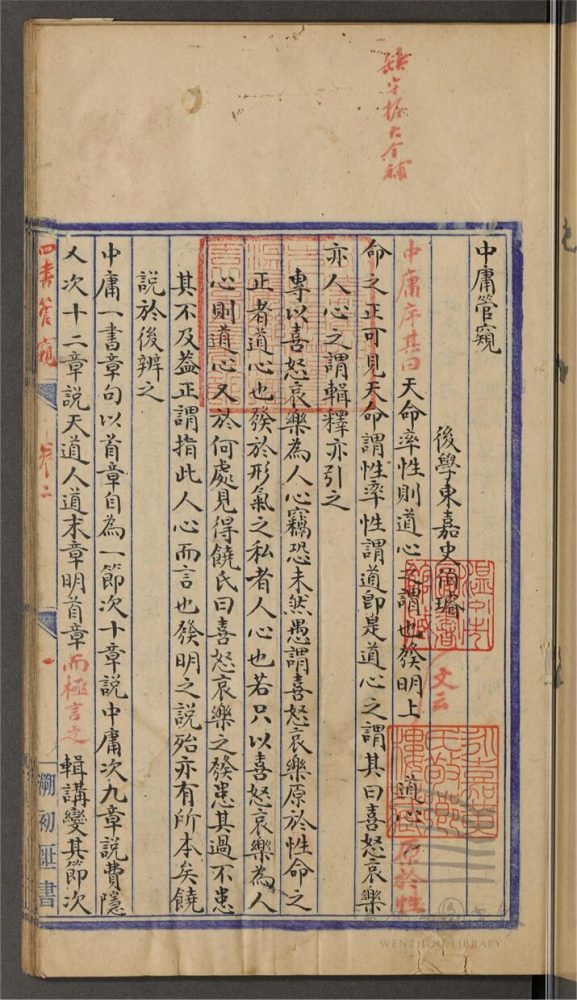 缺字據大全補
中庸管窺
後學東嘉史伯璿
中庸序其曰天命率性則道心之謂也發明上文云道心原於性
命之正可見天命謂性率性謂道即是道心之謂其曰喜怒哀樂
亦人心之謂輯釋亦引之
專以喜怒哀樂為人心竊恐未然愚謂喜怒哀樂原於性命之
正者道心也發於形氣之私者人心也若只以喜怒哀樂為人
心則道心又於何處見得饒氏曰喜怒哀樂之發患其過不患
其不及蓋正謂指此人心而言也發明之說殆亦有所本矣饒
說於後辨之
中庸一書章句以首章自為一節次十章說中庸次九章說費隱
又次十二章說天道人道末章明首章而極言之輯講變其節次
四書管窺
卷二
一
溯初匯書
WENZHOU LIBRARY